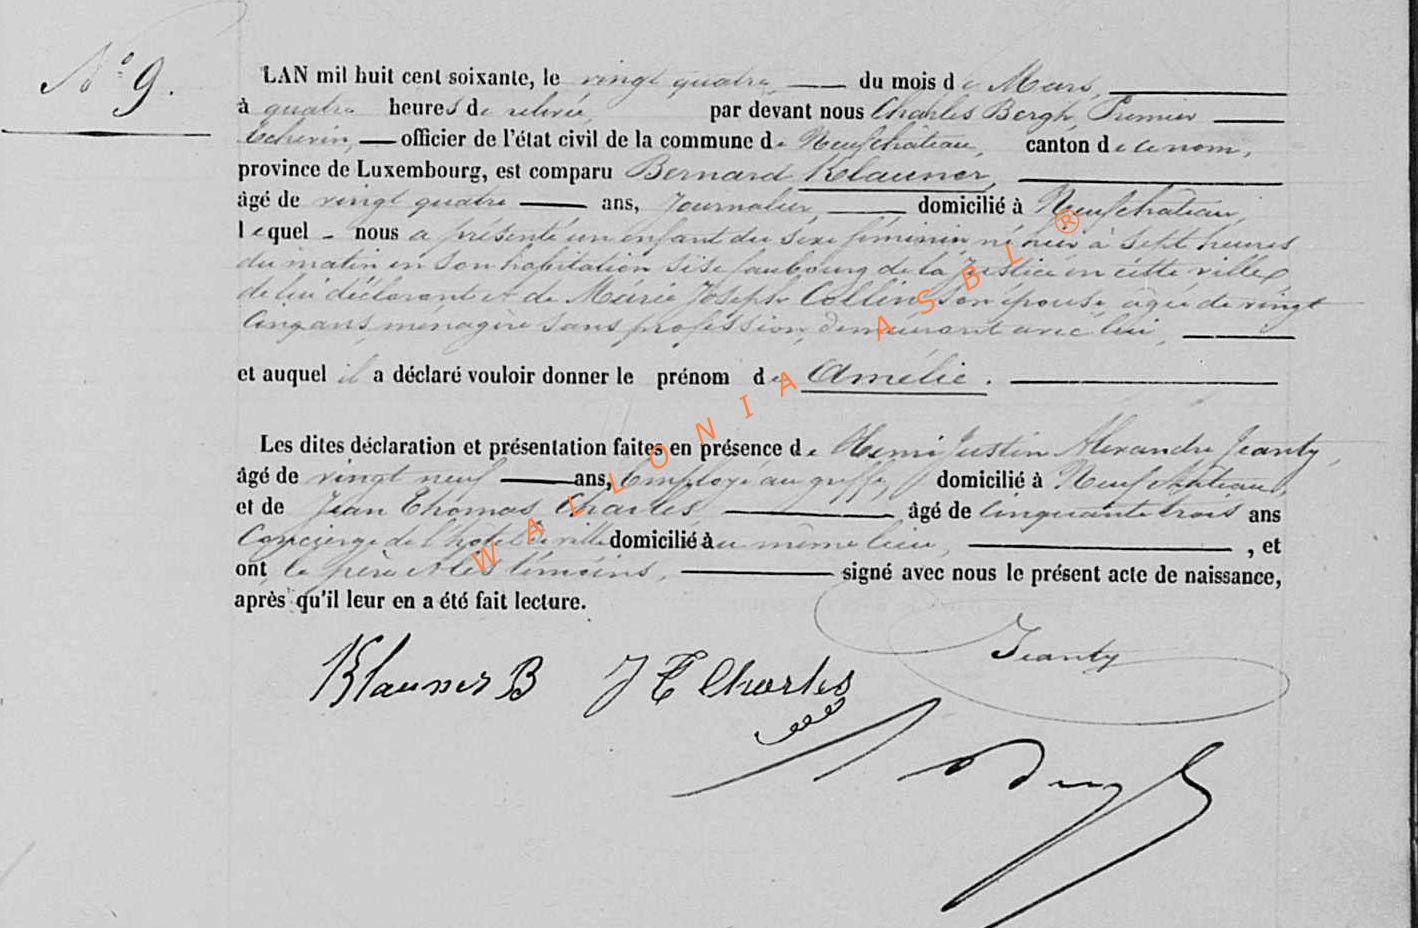 N° 9.
L'AN mil huit cent soixante, le vingt quatre du mois de Mars,
à quatre heures de relevée, par devant nous Charles Bergh, Premier
Echevin, officier de l'état civil de la commune de Neufchâteau, canton de ce nom,
province de Luxembourg, est comparu Bernard Klauner,
âgé de vingt quatre ans, Journalier, domicilié à Neufchâteau,
lequel nous a présenté un enfant du sexe féminin né hui à sept heures
du matin en son habitation sise faubourg de la Justice en cette ville
de lui déclarant et de Marie Joseph Collin son épouse, agée de vingt
cinq ans, ménagère sans profession, demeurant avec lui,
et auquel il a déclaré vouloir donner le prénom de Amélie.
Les dites déclaration et présentation faites en présence de Henri Justin Alexandre Jeanty,
âgé de vingt neuf ans, Employé au greffe, domicilié à Neufchâteau,
et de Jean Thomas Charles âgé de cinquante trois ans
Concierge de l'hôtel de ville domicilié au même lieu, , et
ont, le père et les témoins, signé avec nous le présent acte de naissance,
après qu'il leur en a été fait lecture.
Jeanty
Klauner B J T Charles
WALLONIA ASBL ®